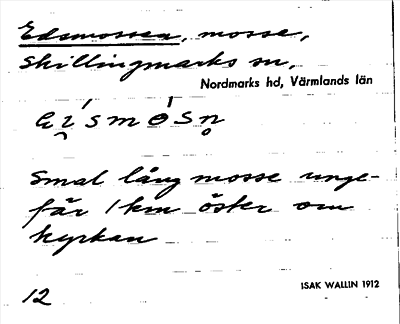 Edsmossen, mosse,
Skillingmarks sn,
Nordmarks hd, Värmlands län
Smal lång mosse unge-
fär 1 km öster om
kyrkan
12
ISAK WALLIN 1912